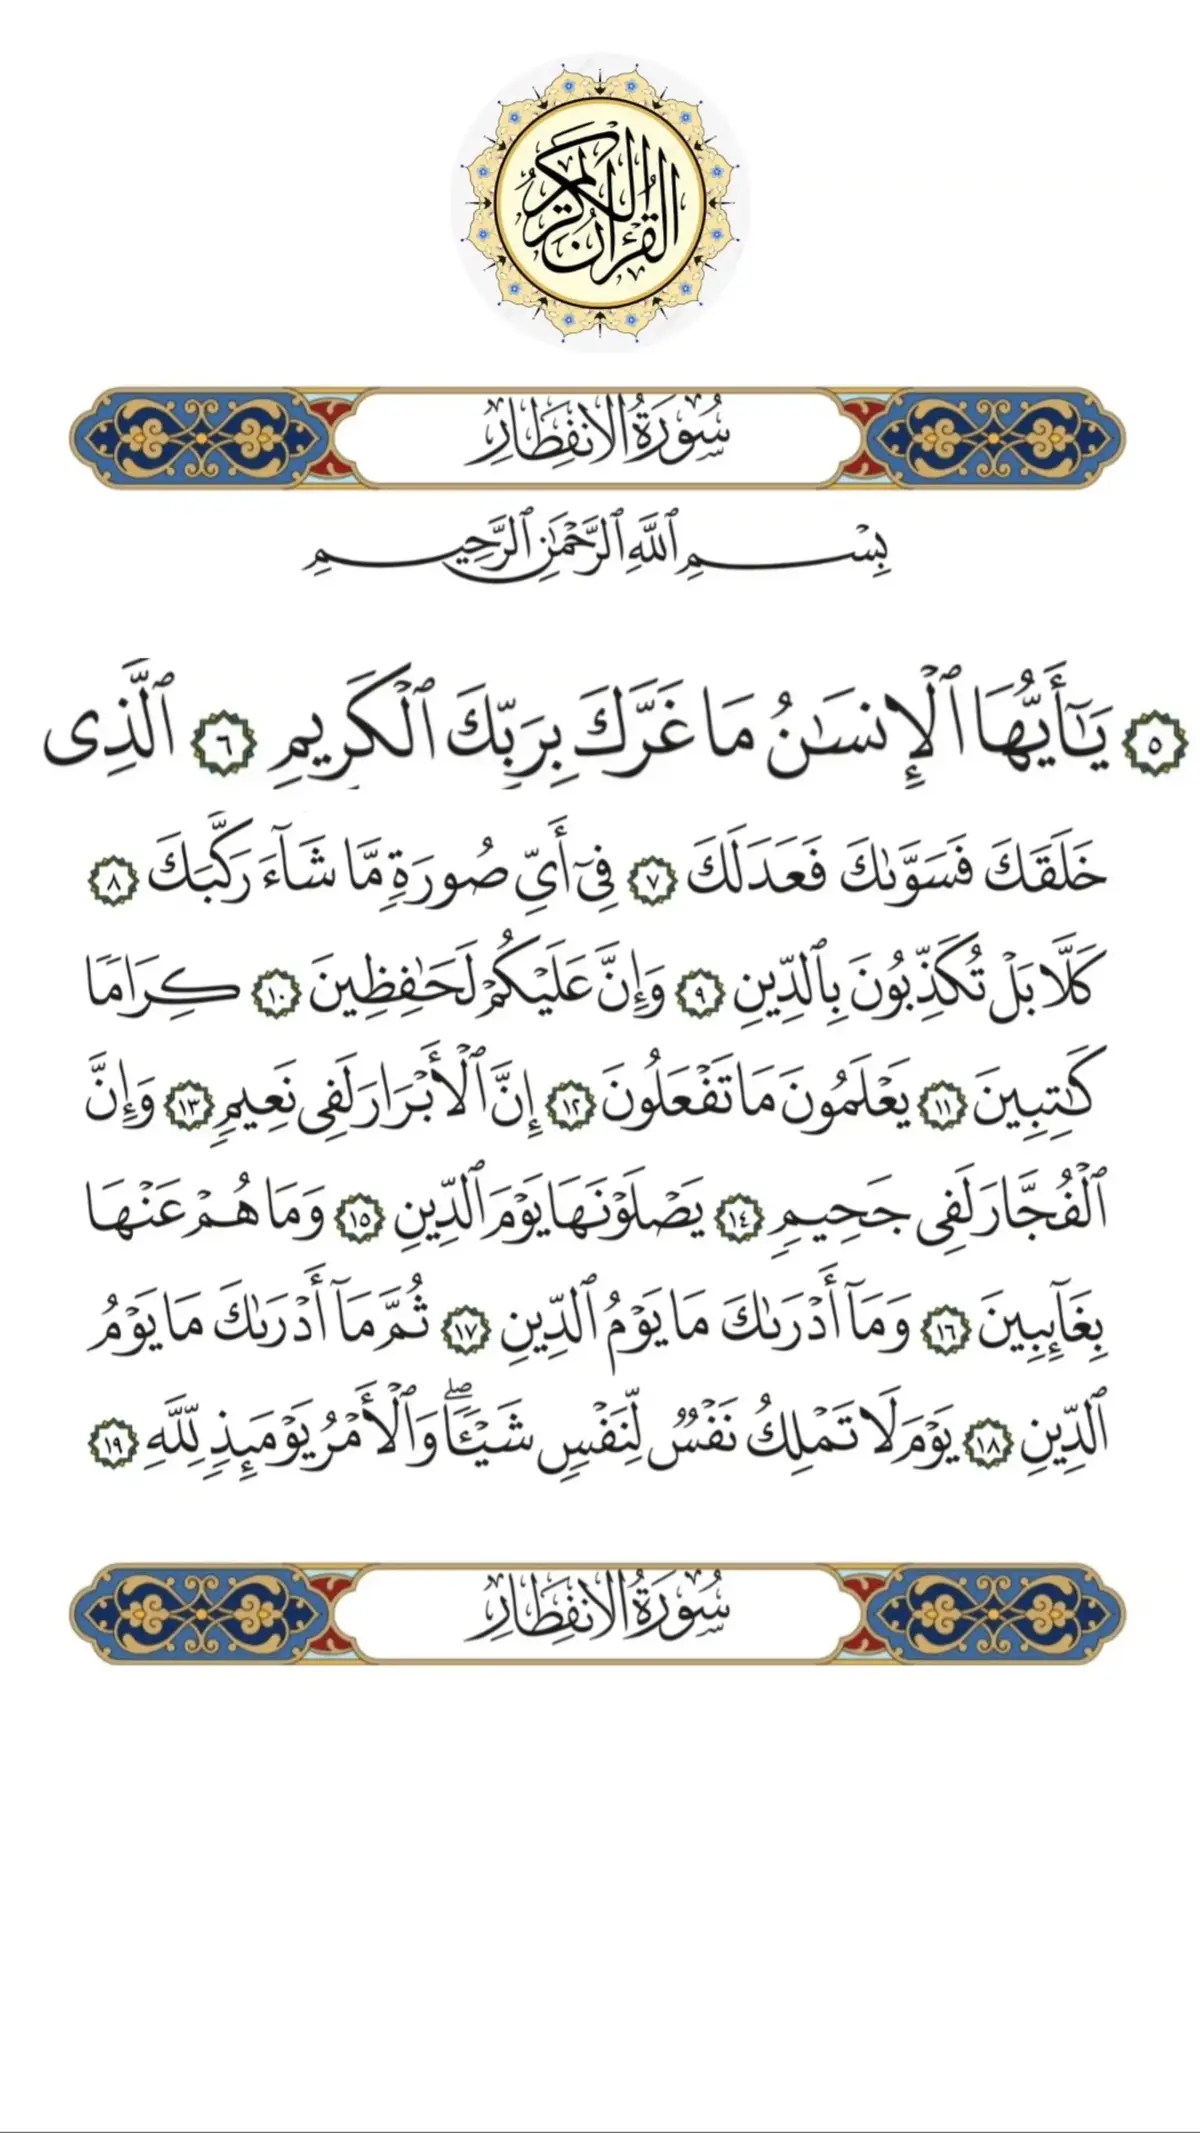 القرآن الكريم
سُورَةُ الانفِطَارِ
بِسْمِ ٱللَّهِ ٱلرَّحْمَٰنِ ٱلرَّحِيمِ
٥ يَٰٓأَيُّهَا ٱلْإِنسَٰنُ مَا غَرَّكَ بِرَبِّكَ ٱلْكَرِيمِ ٦ ٱلَّذِى
خَلَقَكَ فَسَوَّىٰكَ فَعَدَلَكَ ٧ فِىٓ أَىِّ صُورَةٍ مَّا شَآءَ رَكَّبَكَ ٨
كَلَّا بَلْ تُكَذِّبُونَ بِٱلدِّينِ ٩ وَإِنَّ عَلَيْكُمْ لَحَٰفِظِينَ ١٠ كِرَامًا
كَٰتِبِينَ ١١ يَعْلَمُونَ مَا تَفْعَلُونَ ١٢ إِنَّ ٱلْأَبْرَارَ لَفِى نَعِيمٍ ١٣ وَإِنَّ
ٱلْفُجَّارَ لَفِى جَحِيمٍ ١٤ يَصْلَوْنَهَا يَوْمَ ٱلدِّينِ ١٥ وَمَا هُمْ عَنْهَا
بِغَآئِبِينَ ١٦ وَمَآ أَدْرَىٰكَ مَا يَوْمُ ٱلدِّينِ ١٧ ثُمَّ مَآ أَدْرَىٰكَ مَا يَوْمُ
ٱلدِّينِ ١٨ يَوْمَ لَا تَمْلِكُ نَفْسٌ لِّنَفْسٍ شَيْـًٔا ۖ وَٱلْأَمْرُ يَوْمَئِذٍ لِّلَّهِ ١٩
سُورَةُ الانفِطَارِ